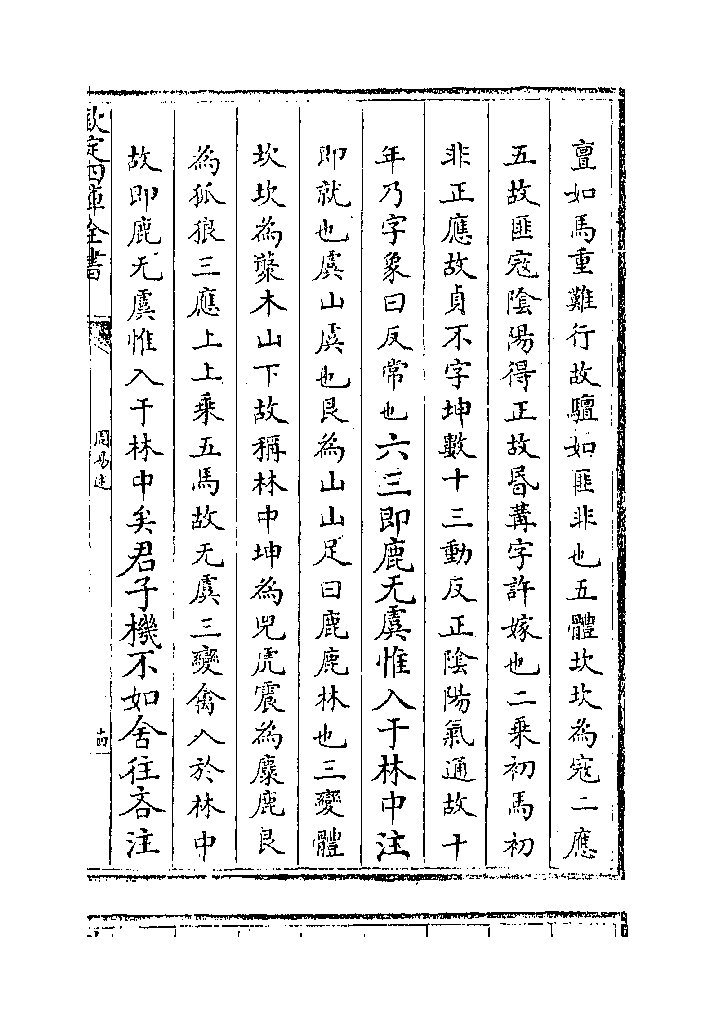 亶如馬重難行故驙如匪非也五體坎坎為寇二應
五故匪寇陰陽得正故昬冓字許嫁也二乗初馬初
非正應故貞不字坤數十三動反正陰陽氣通故十
年乃字象曰反常也六三即鹿无虞惟入于林中注
即就也虞山虞也艮為山山足曰鹿鹿林也三變體
坎坎為藂木山下故稱林中坤為兕虎震為麋鹿艮
為狐狼三應上上乗五馬故无虞三變禽入於林中
故即鹿无虞惟入于林中矣君子機不如舍往吝注
欽定四庫全書
周易述